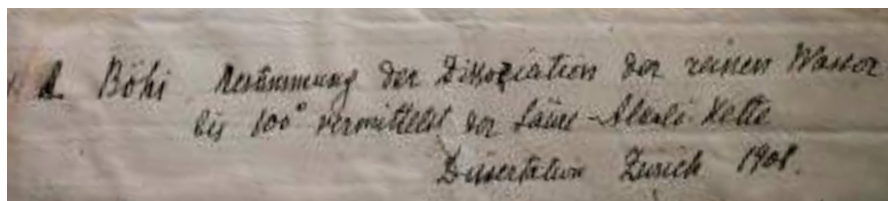 Böhi Bestimmung der Dissoziation der reinen Wasser
bis 100° vermittelst der Säure-Alkali-Kette
Dissertation Zürich 1908.